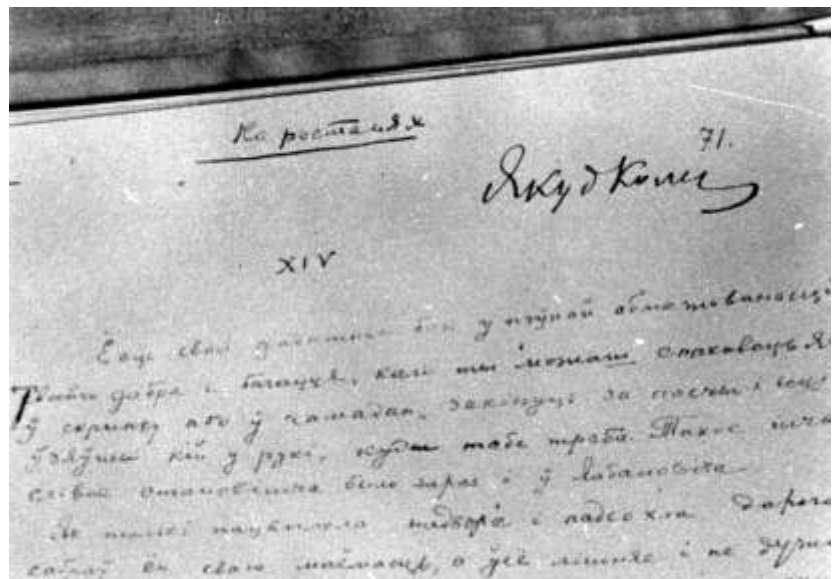 На ростанях
71.
Якуб Колас
XIV
Ёсць свой дадатны бок у пэўнай абмежаванасці
Тваго дабра і багацця, калі ты можаш спакаваць
ў скрынку або ў чамадан, закінуць за плечы і
ўзяўшы кій у рукі, куды табе трэба. Такое
становішча было зараз і ў Лабановіча.
Як толькі надворе і падсохла дарога
сабраў ён сваю маёмасць, а ўсё лішняе і не дужа